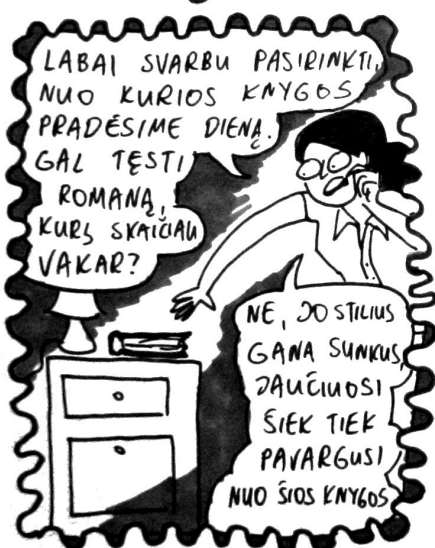 LABAI SVARBU PASIRINKTI,
NUO KURIOS KNYGOS
PRADĖSIME DIENĄ.
GAL TĘSTI
ROMANĄ,
KURĮ SKAIČIAU
VAKAR?
NE, JO STILIUS
GANA SUNKUS,
JAUČIUOSI
ŠIEK TIEK
PAVARGUSI
NUO ŠIOS KNYGOS